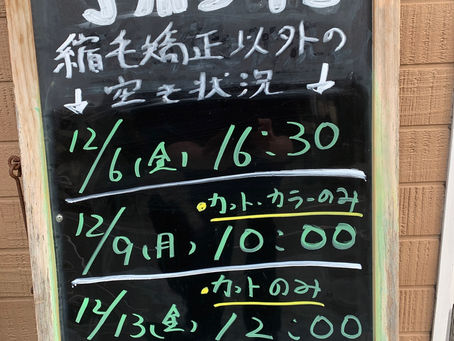 縮毛矯正以外の
↓空き状況↓
12/6(金) 16:30
・カット・カラーのみ
12/9(月) 10:00
・カットのみ
12/13(金) 12:00